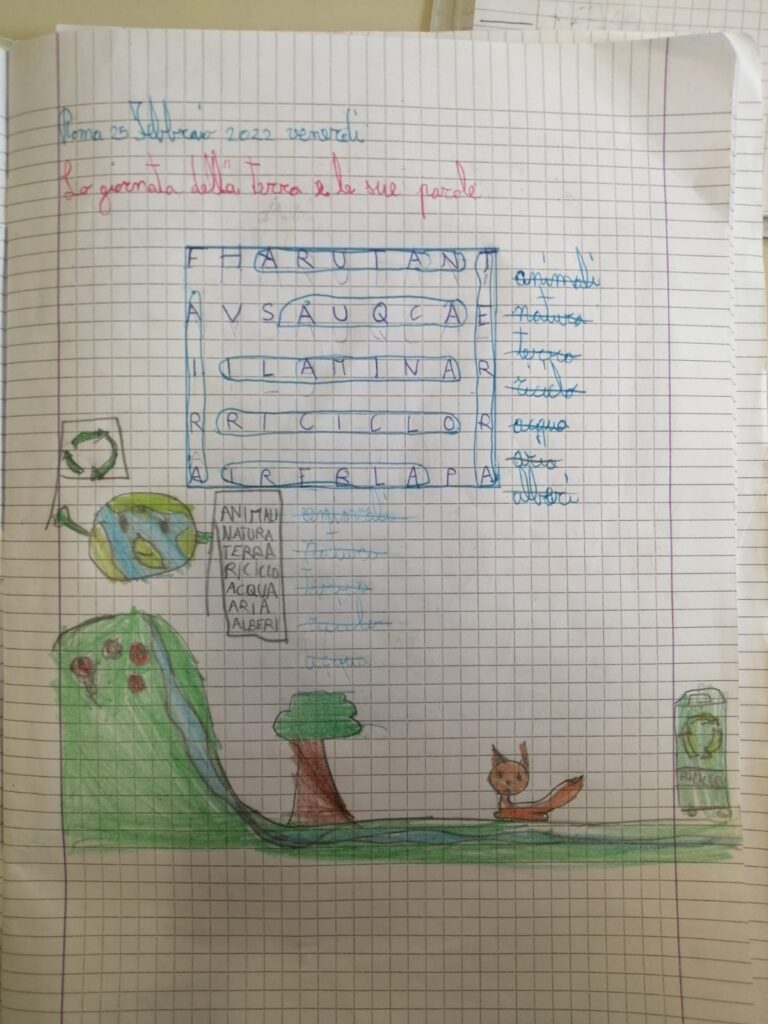 Roma 25 Febbraio 2022 venerdì
La giornata della terra e le sue parole
F H A R U T A N T
A V S A U Q C A E
I I L A M I N A R
R R I C I C L O R
A I R E B L A P A
animali
natura
terra
riciclo
acqua
aria
alberi
ANIMALI animali
NATURA natura
TERRA terra
RICICLO riciclo
ACQUA acqua
ARIA
ALBERI